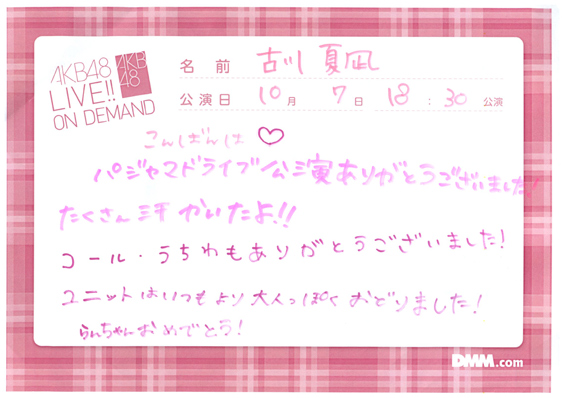 AKB48
LIVE!!
ON DEMAND
AKB
48
名前 古川 夏凪
公演日 10月 7日 18:30 公演
こんばんは♡
パジャマドライブ公演ありがとうございました!
たくさん汗かいたよ!!
コール・うちわもありがとうございました!
ユニットはいつもより大人っぽくおどりました!
らんちゃんおめでとう!
DMM.com